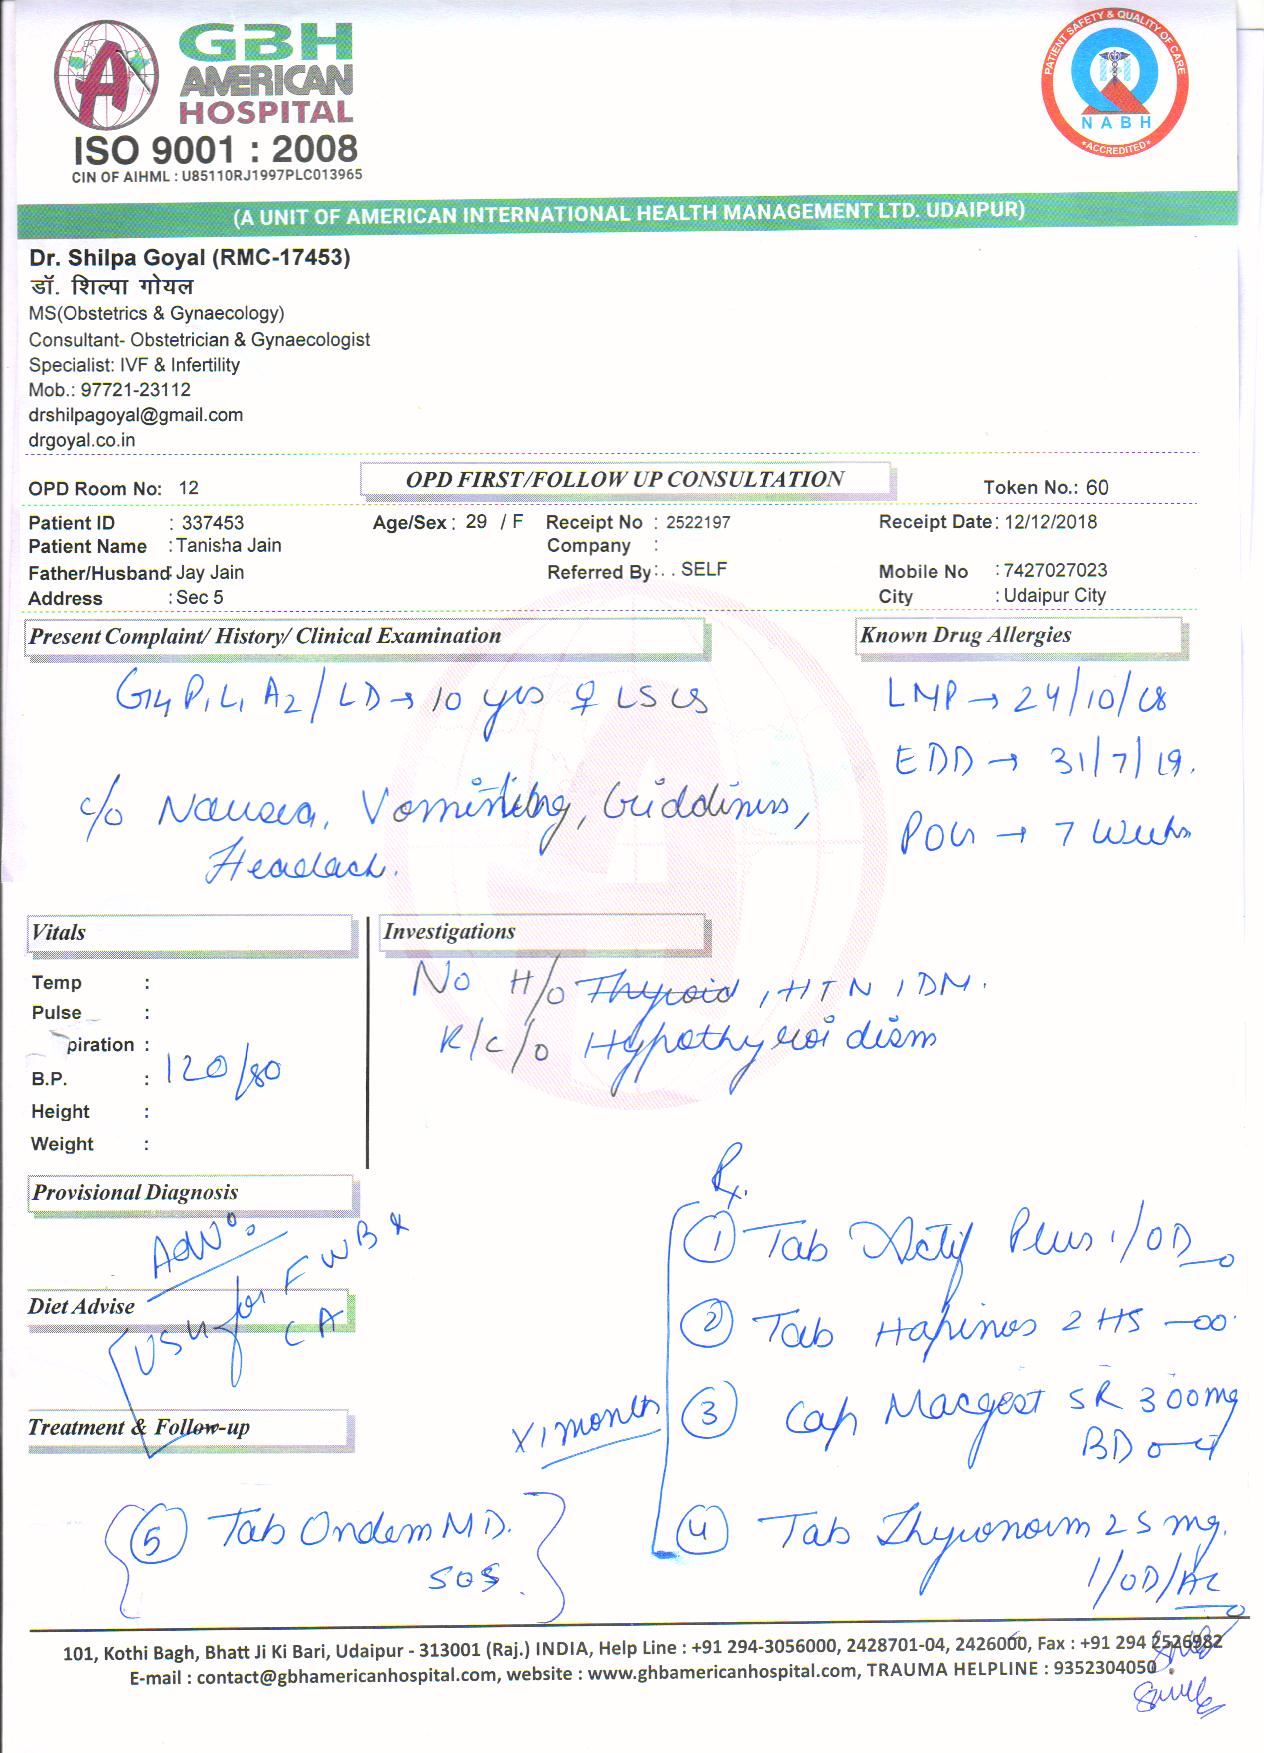 GBH
AMERICAN
HOSPITAL
ISO 9001 : 2008
CIN OF AIHML : U85110RJ1997PLC013965
PATIENT SAFETY & QUALITY OF CARE
NABH
ACCREDITED
(A UNIT OF AMERICAN INTERNATIONAL HEALTH MANAGEMENT LTD. UDAIPUR)
Dr. Shilpa Goyal (RMC-17453)
डॉ. शिल्पा गोयल
MS(Obstetrics & Gynaecology)
Consultant- Obstetrician & Gynaecologist
Specialist: IVF & Infertility
Mob.: 97721-23112
drshilpagoyal@gmail.com
drgoyal.co.in
OPD Room No: 12 OPD FIRST/FOLLOW UP CONSULTATION Token No.: 60
Patient ID : 337453 Age/Sex : 29 / F Receipt No : 2522197 Receipt Date : 12/12/2018
Patient Name : Tanisha Jain Company :
Father/Husband : Jay Jain Referred By : . . SELF Mobile No : 7427027023
Address : Sec 5 City : Udaipur City
Present Complaint/ History/ Clinical Examination Known Drug Allergies
G4 P1 L1 A2 / LD → 10 yrs ♀ LSCS LMP → 24/10/18
EDD → 31/7/19.
c/o Nausea, Vomiting, Giddiness, POG → 7 Weeks
Headach.
Vitals Investigations
Temp : No H/o Thyroid, HTN, DM.
Pulse : K/c/o Hypothyroidism
piration :
B.P. : 120/80
Height :
Weight :
Rx.
Provisional Diagnosis
Adv: ① Tab Actif Plus 1/OD
USG for FWB &
Diet Advise CA ② Tab Hapinos 2 HS
③ Cap Macgest SR 300mg
Treatment & Follow-up x 1 month BD
⑤ Tab Ondem MD. ④ Tab Thyronorm 25 mg.
SOS 1/OD/AC
101, Kothi Bagh, Bhatt Ji Ki Bari, Udaipur - 313001 (Raj.) INDIA, Help Line : +91 294-3056000, 2428701-04, 2426000, Fax : +91 294 2526982
E-mail : contact@gbhamericanhospital.com, website : www.ghbamericanhospital.com, TRAUMA HELPLINE : 9352304050